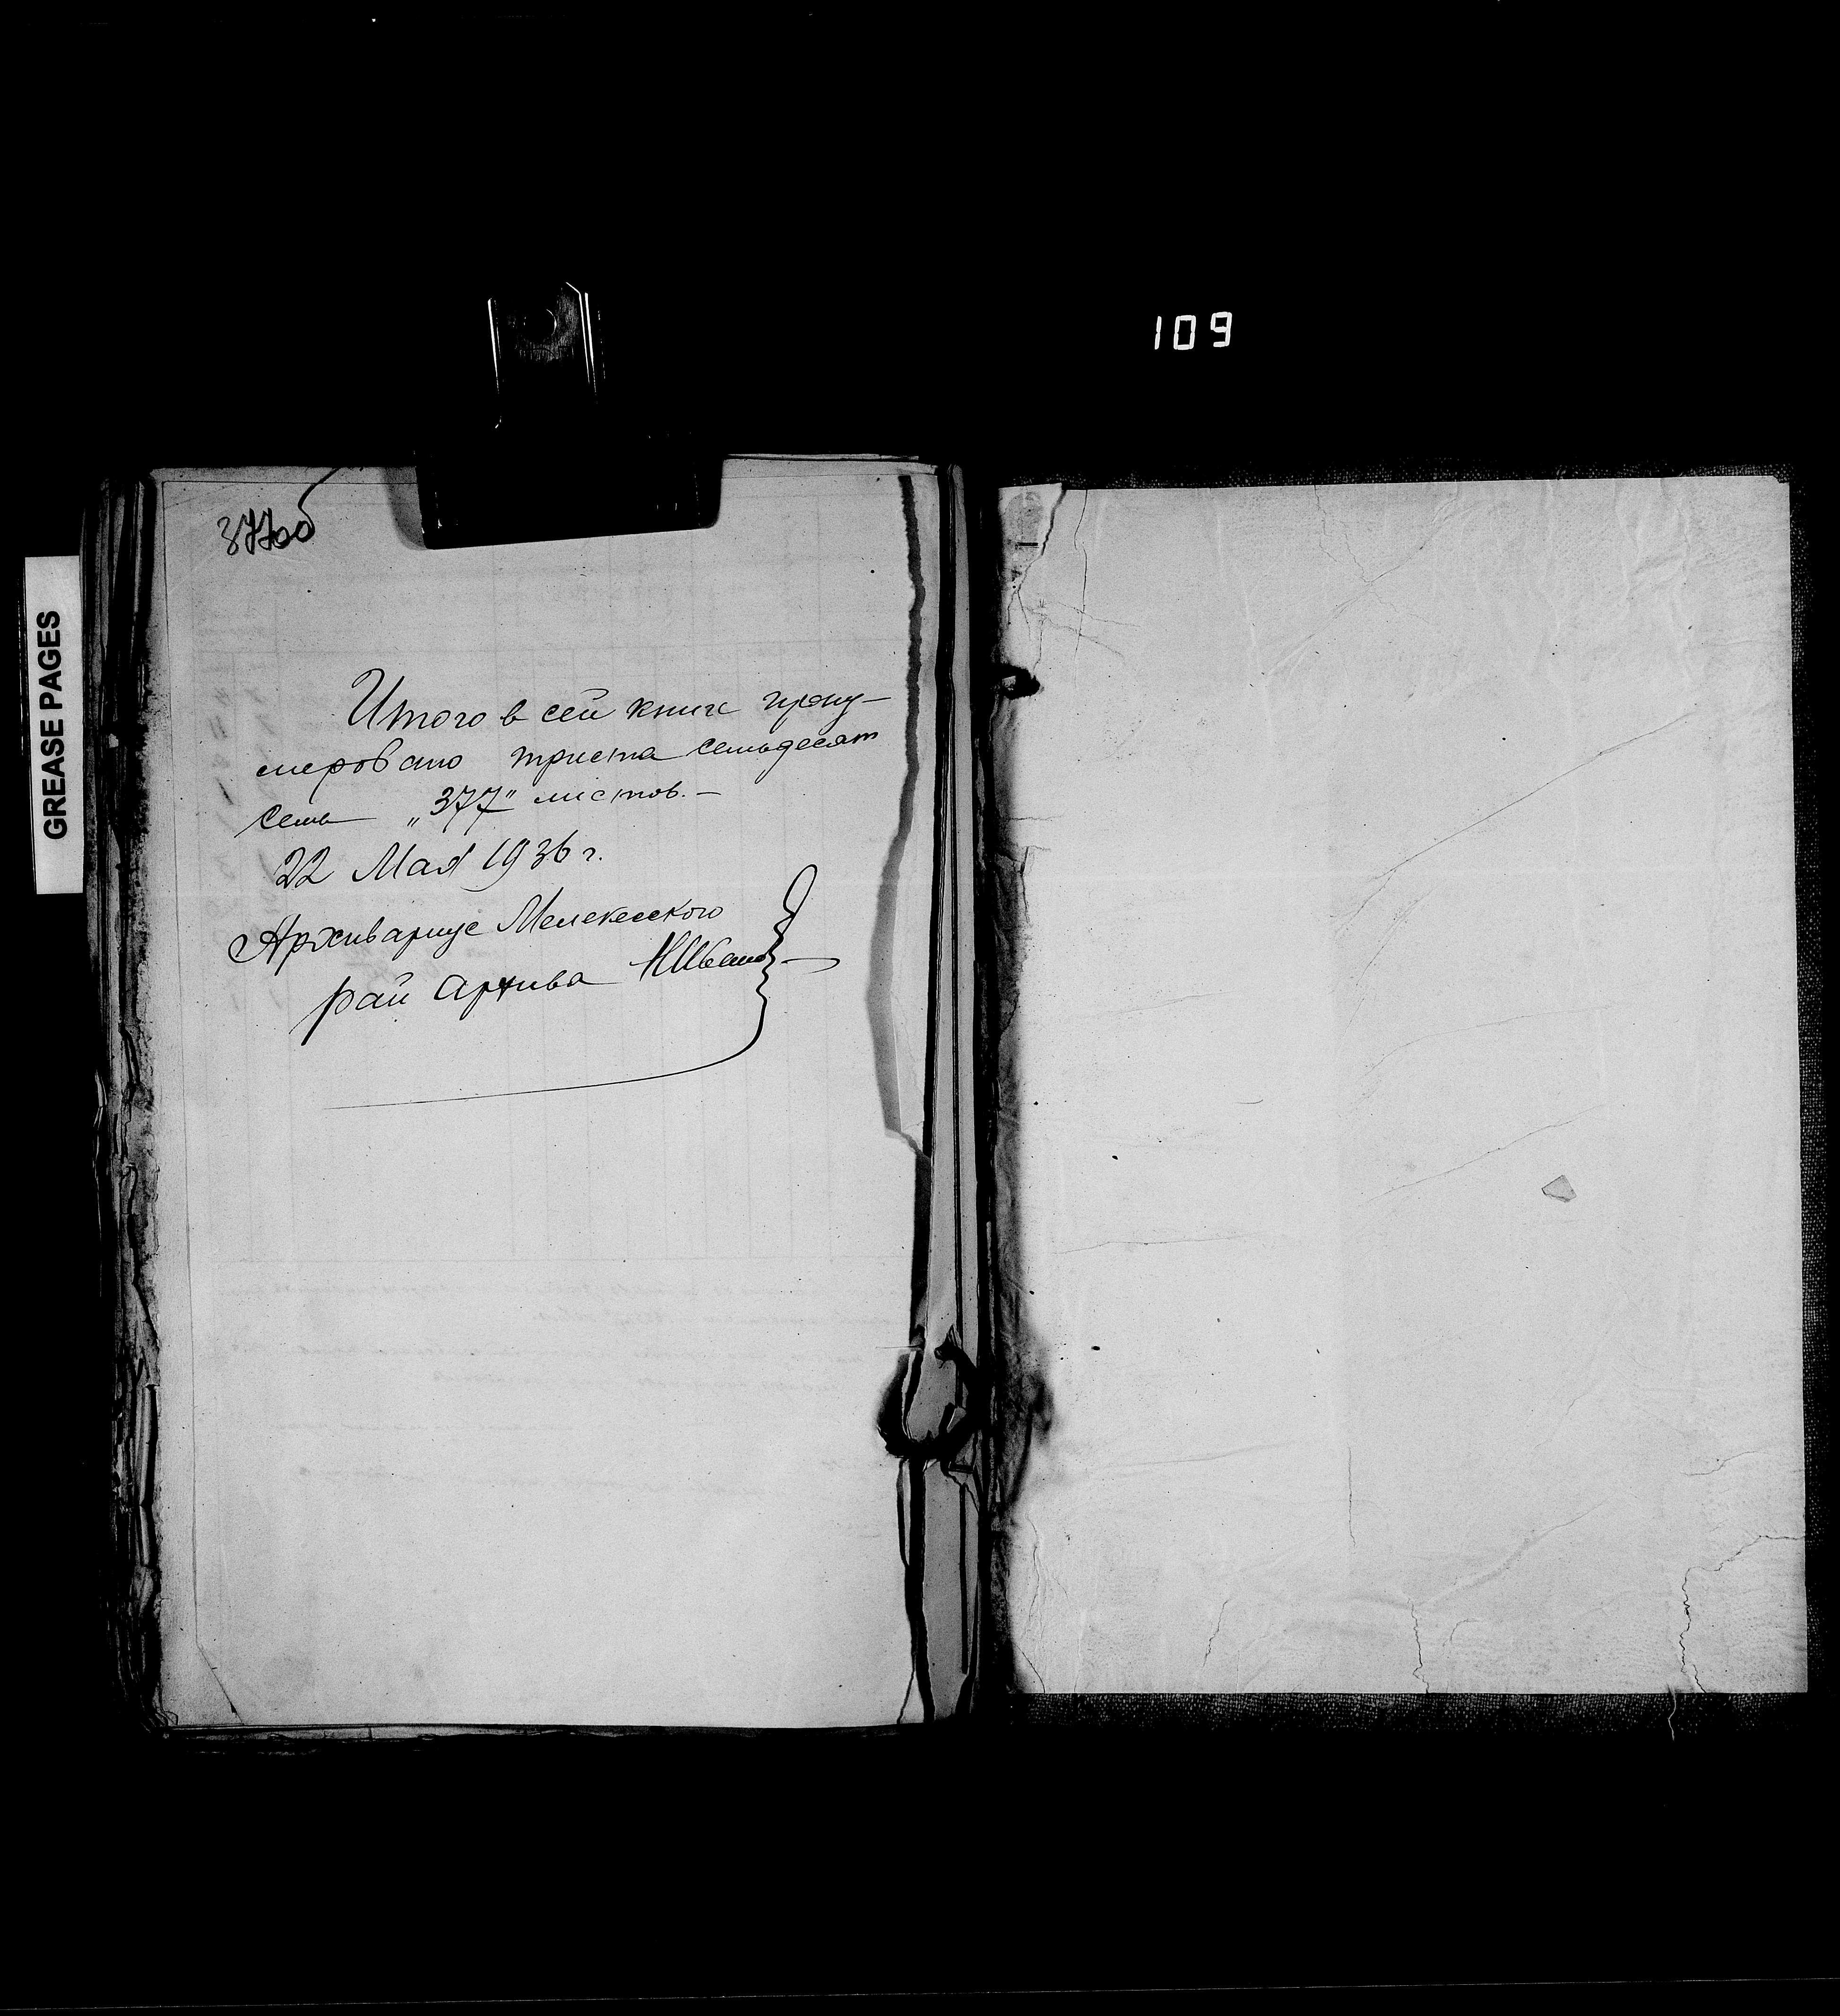 109
377об
GREASE PAGES
Итого в сей книге прону-
меровано триста семьдесят
семь „377" листов. —
22 Мая 1936 г.
Архивариус Мелекесского
рай архива